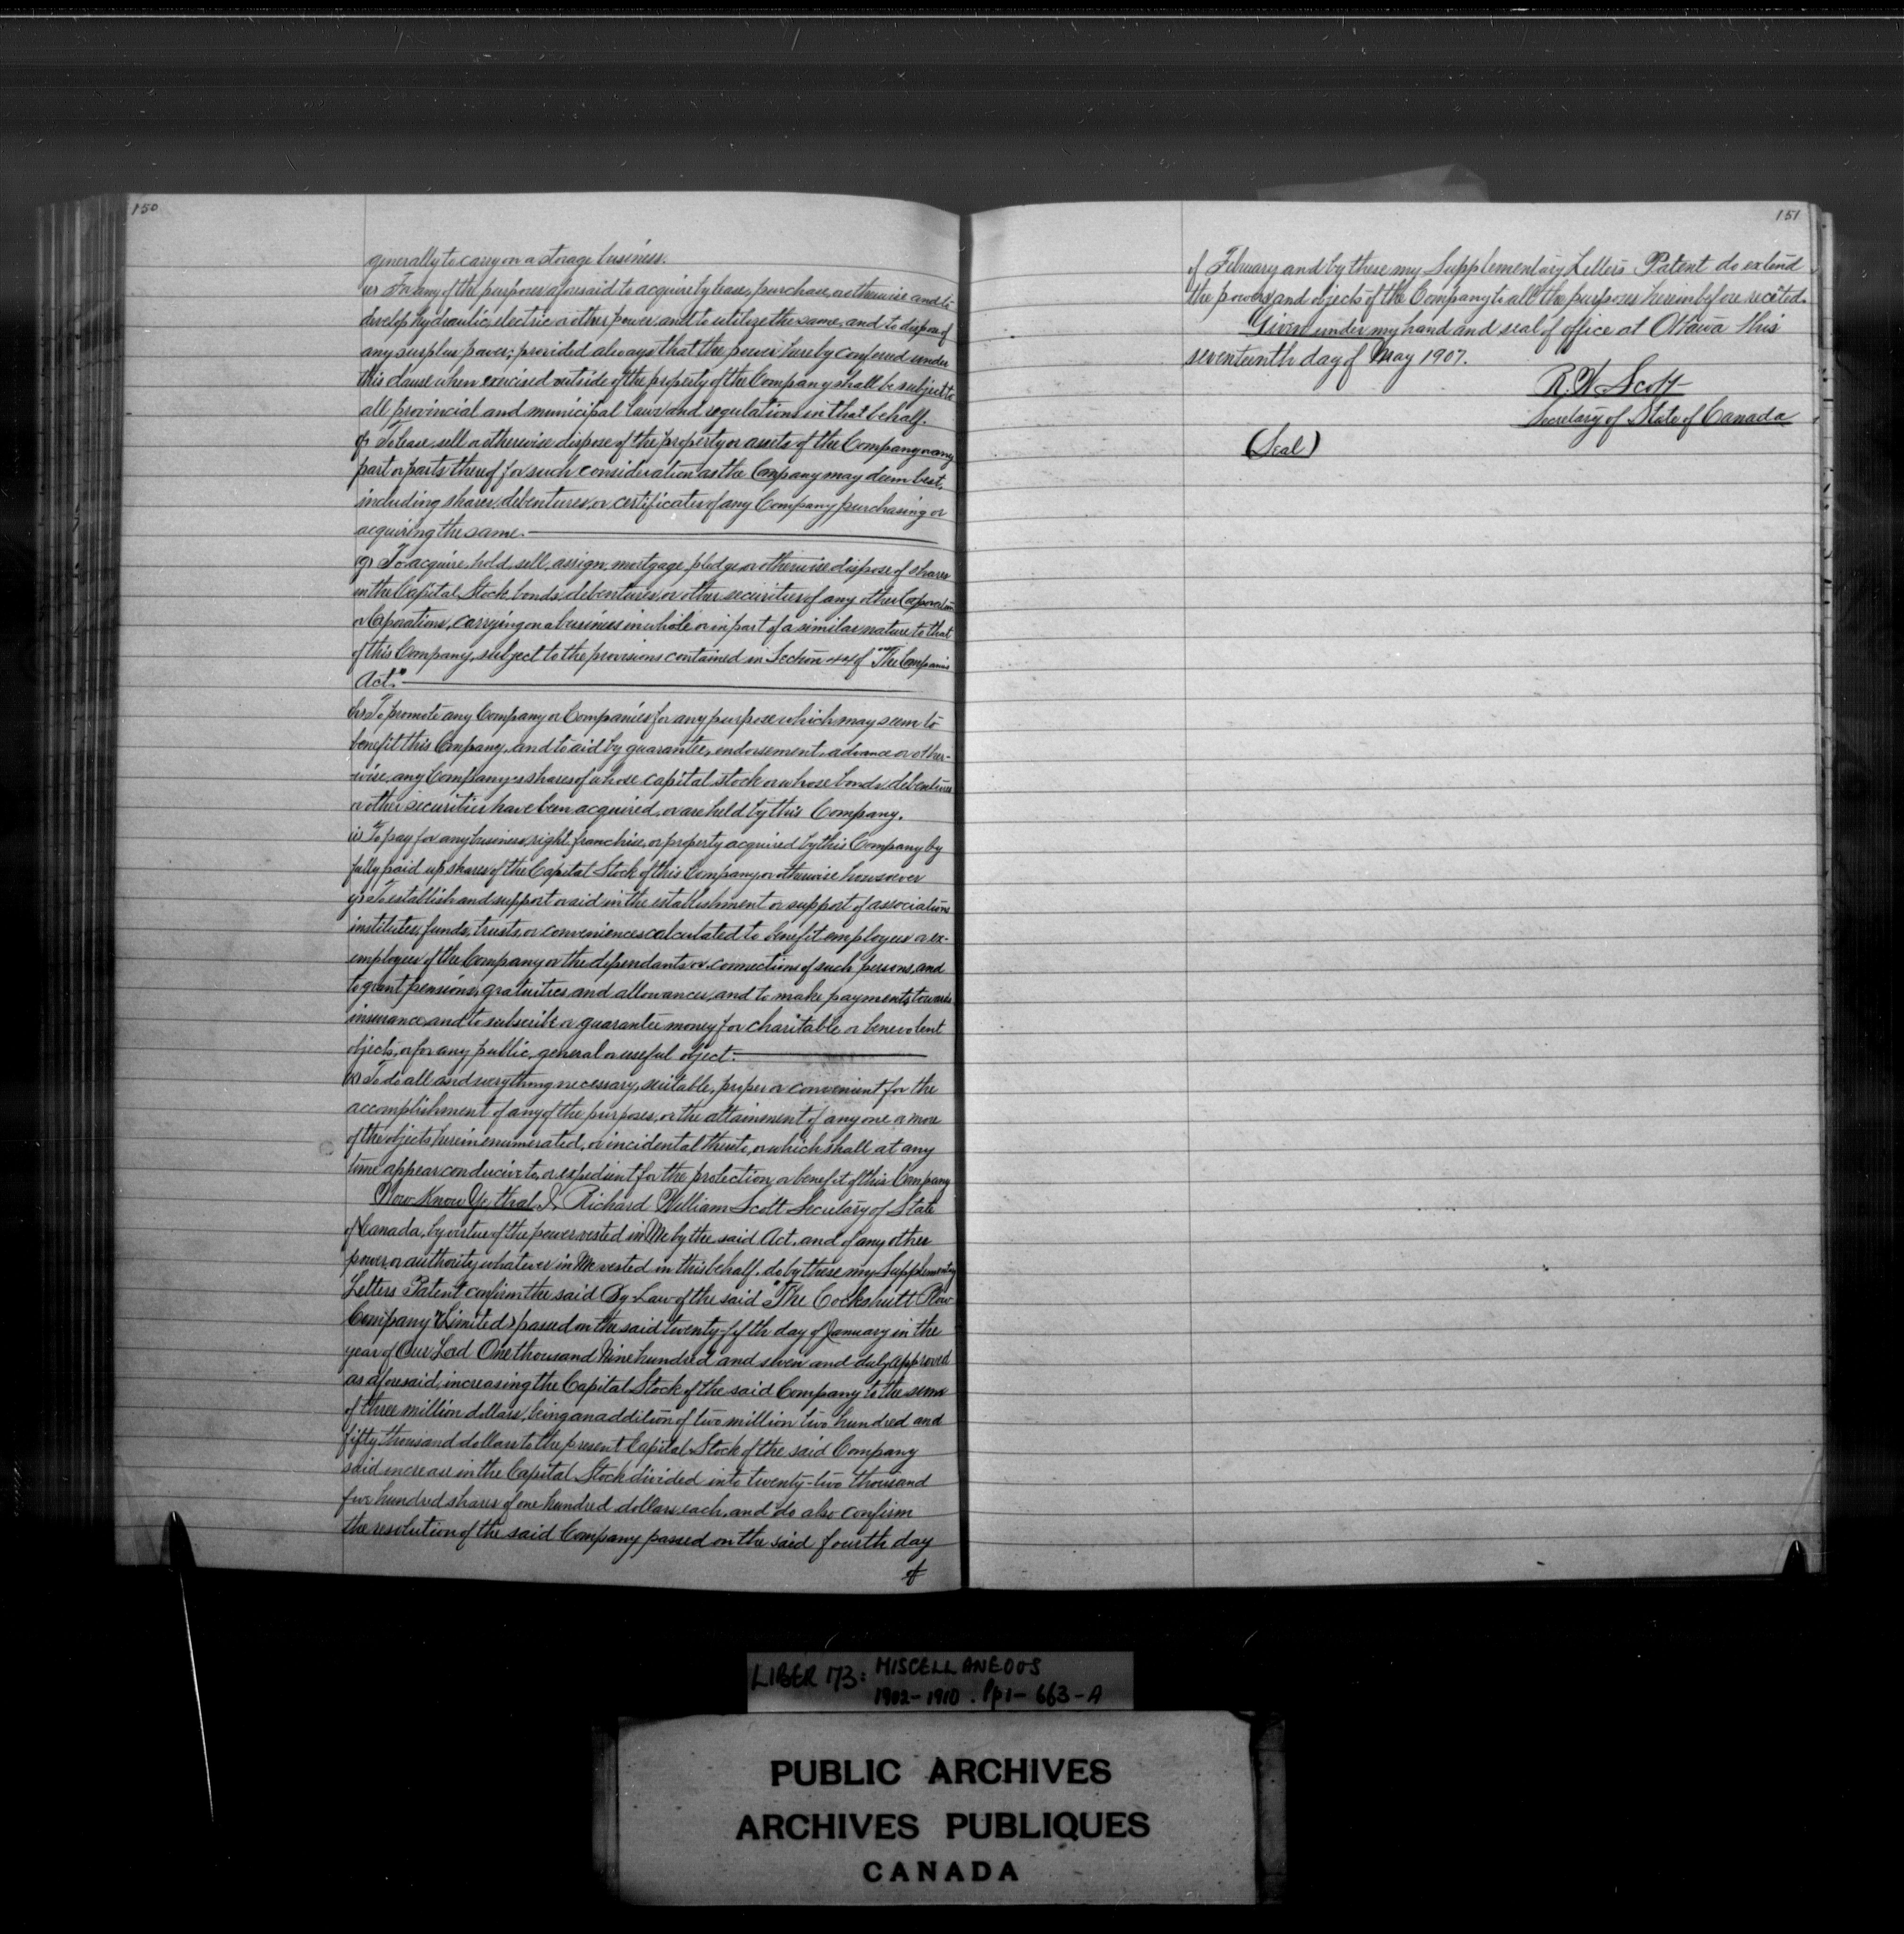 150
generally to carry on a storage business.
(e) For any of the purposes aforesaid to acquire by lease, purchase, or otherwise and to
develop hydraulic, electric or other power, and to utilize the same, and to dispose of
any surplus power; provided always that the power hereby conferred under
this clause when exercised outside of the property of the Company shall be subject to
all provincial and municipal laws and regulations in that behalf.
(f) To lease, sell or otherwise dispose of the property or assets of the Company or any
part or parts thereof for such consideration as the Company may deem best,
including shares, debentures, or certificates of any Company purchasing or
acquiring the same.
(g) To acquire, hold, sell, assign, mortgage, pledge, or otherwise dispose of shares
in the Capital Stock, bonds, debentures, or other securities of any other Corporation
or Corporations, carrying on a business in whole or in part of a similar nature to that
of this Company, subject to the provisions contained in Section 44 of "The Companies
Act."
(h) To promote any Company or Companies for any purpose which may seem to
benefit this Company, and to aid by guarantee, endorsement, advance or other-
wise, any Company, shares of whose capital stock or whose bonds, debentures
or other securities have been acquired, or are held by this Company.
(i) To pay for any business, right, franchise, or property acquired by this Company by
fully paid up shares of the Capital Stock of this Company, or otherwise howsoever
(j) To establish and support or aid in the establishment or support of associations
institutes, funds, trusts, or conveniences calculated to benefit employees or ex-
employees of the Company or the dependants or connections of such persons, and
to grant pensions, gratuities and allowances, and to make payments towards
insurance, and to subscribe or guarantee money for charitable or benevolent
objects, or for any public, general or useful object.
(k) To do all and everything necessary, suitable, proper or convenient for the
accomplishment of any of the purposes, or the attainment of any one or more
of the objects herein enumerated, or incidental thereto, or which shall at any
time appear conducive to, or expedient for the protection, or benefit of this Company
Now Know Ye, that I, Richard William Scott Secretary of State
of Canada, by virtue of the power vested in Me by the said Act, and of any other
power or authority whatever in Me vested in this behalf, do by these my Supplementary
Letters Patent confirm the said By-Law of the said "The Cockshutt Plow
Company" (Limited) passed on the said twenty-fifth day of January in the
year of Our Lord One thousand Nine hundred and seven and duly approved
as aforesaid, increasing the Capital Stock of the said Company to the sum
of three million dollars, being an addition of two million two hundred and
fifty thousand dollars to the present Capital Stock of the said Company
said increase in the Capital Stock divided into twenty-two thousand
five hundred shares of one hundred dollars each, and do also confirm
the resolution of the said Company passed on the said fourth day
of
151
of February and by these my Supplementary Letters Patent do extend
the powers and objects of the Company to all the purposes hereinbefore recited.
Given under my hand and seal of office at Ottawa this
seventeenth day of May 1907.
R. W. Scott
Secretary of State of Canada
(Seal)
LIBER 173: MISCELLANEOUS
1902-1910. Pp 1-663-A
PUBLIC ARCHIVES
ARCHIVES PUBLIQUES
CANADA